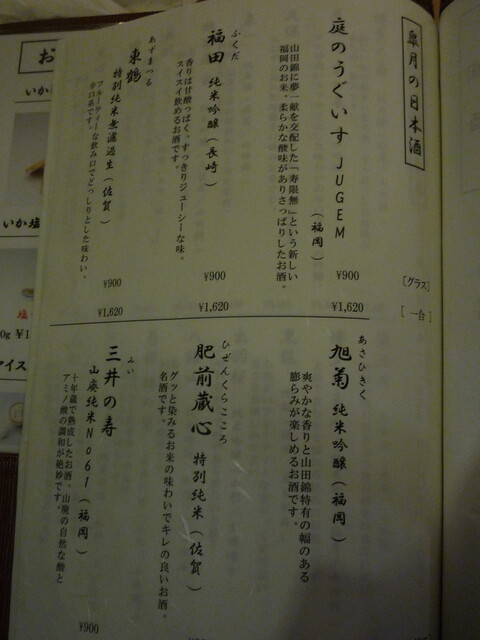 皐月の日本酒
[グラス]
[一合]
庭のうぐいす JUGEM
(福岡)
山田錦に夢一献を交配した『寿限無』という新しい
福岡のお米。柔らかな酸味がありさっぱりしたお酒。
¥900
¥1,620
ふくだ
福田 純米吟醸(長崎)
香りは甘酸っぱく、すっきりジューシーな味。
スイスイ飲めるお酒です。
¥900
¥1,620
あずまつる
東鶴
特別純米無濾過生(佐賀)
フルーティーな飲み口でどっしりとした味わい。
辛口系です。
¥900
¥1,620
あさひきく
旭菊 純米吟醸(福岡)
爽やかな香りと山田錦特有の幅のある
膨らみが楽しめるお酒です。
ひぜんくらこころ
肥前蔵心 特別純米(佐賀)
グッと染みるお米の味わいでキレの良いお酒。
名酒です。
三井の寿
山廃純米No61(福岡)
十年蔵で熟成したお酒。山廃の自然な酸と
アミノ酸の調和が絶妙です。
¥900
お
いか
いか塩
塩
0g ¥1
アイス